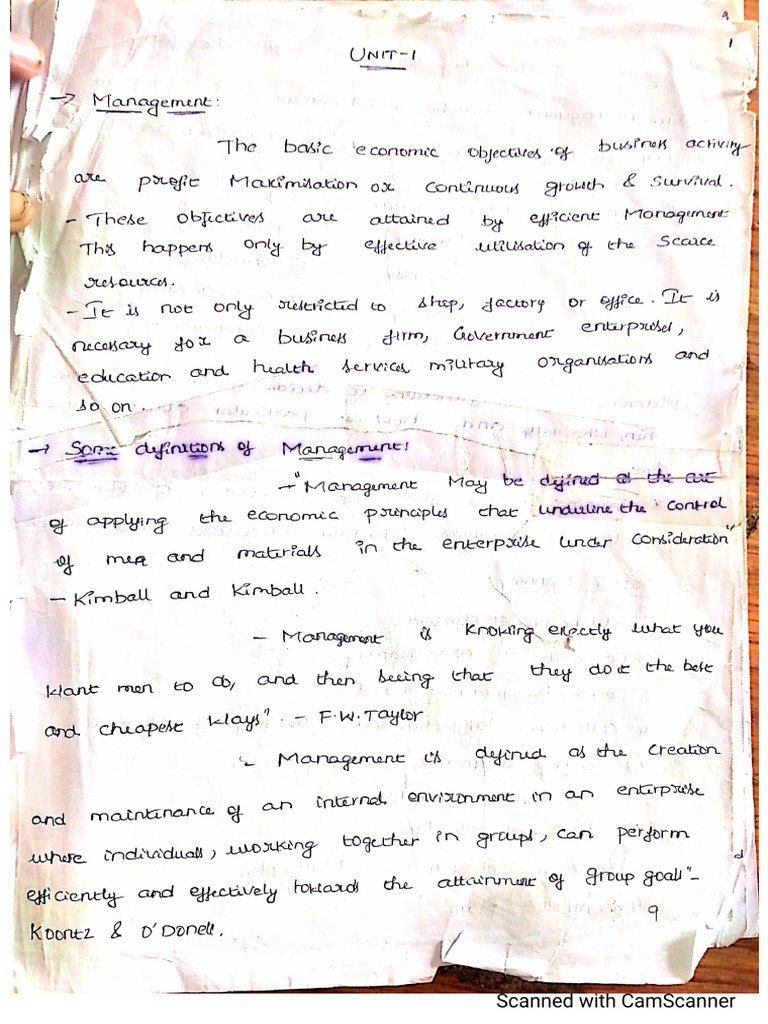 9
1
UNIT-1
→ Management:
The basic economic objectives of business activity
are profit Maximisation or continuous growth & survival.
- These objectives are attained by efficient Management
This happens only by effective utilisation of the scarce
resources.
- It is not only restricted to shop, factory or office. It is
necessary for a business firm, Government enterprises,
education and health services military organisations and
so on.
→ Some definitions of Management:
- "Management May be defined as the art
of applying the economic principles that underline the control
of men and materials in the enterprise under consideration"
- Kimball and Kimball.
- Management is knowing exactly what you
want men to do, and then seeing that they do it the best
and cheapest ways". - F.W. Taylor
"- Management is defined as the creation
and maintenance of an internal environment in an enterprise
where individuals, working together in groups, can perform
efficiently and effectively towards the attainment of group goals" -
Koontz & O'Donell.
9
Scanned with CamScanner